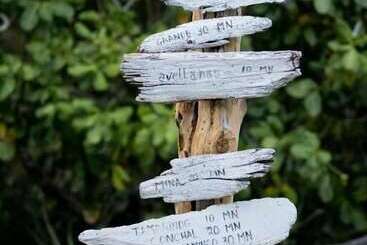 GRANDE 30 MN
avellanas 10 MN
MINA 25 MN
TAMARINDO 10 MN
CONCHAL 20 MN
30 MN